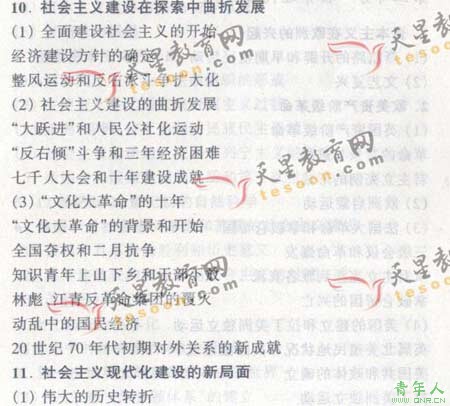 10. 社会主义建设在探索中曲折发展
(1) 全面建设社会主义的开始
经济建设方针的确定
整风运动和反右派斗争扩大化
(2) 社会主义建设的曲折发展
“大跃进”和人民公社化运动
“反右倾”斗争和三年经济困难
七千人大会和十年建设成就
(3) “文化大革命”的十年
“文化大革命”的背景和开始
全国夺权和二月抗争
知识青年上山下乡和干部下放
林彪、江青反革命集团的覆灭
动乱中的国民经济
20世纪70年代初期对外关系的新成就
11. 社会主义现代化建设的新局面
(1) 伟大的历史转折
天星教育网
tesoon.com
天星教育网
tesoon.com
天星教育网
tesoon.com
天星教育网
tesoon.com
青年人
www.QNR.CN